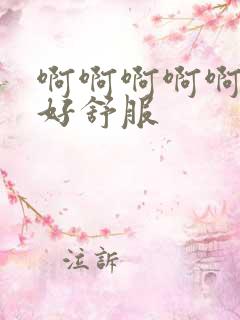 啊啊啊啊啊
好舒服
注訴